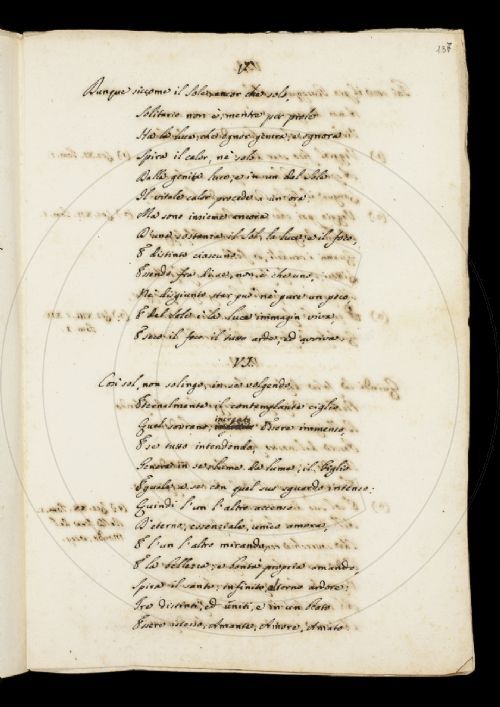 137
V.
Dunque siccome il Sole, ancor che solo,
Solitario non è, mentre per prole
Ha la luce, che ognor genera, e ognora
Spira il calor, nè solo
Dalla genita luce, e in un dal Sole
Il vitale calor procede a un' ora
Ma sono insieme ancora
D'una sostanza il Sol, la luce, e il foco,
E distinto ciascuno
Essendo fra di se, non è che uno,
Nè disgiunto star può nè pure un poco
E del Sole è la luce immagin viva,
E seco il foco il tutto arde, ed avviva.
VI.
Così sol, non solingo, in se volgendo
Eternalmente il contemplante ciglio
Quel sovrano, increato Essere immenso,
E se tutto intendendo,
Genera in se lume de lume, il Figlio
Eguale a se con quel suo sguardo intenso:
Quindi l'un l'altro accenso
D'eterno, essenziale, unico amore,
E l'un l'altro mirando,
E la bellezza, e bontà propria amando,
Spira il santo, infinito, alterno ardore;
Tre distinti, ed uniti, e in un Beato
Essere istesso, Amante, Amore, Amato